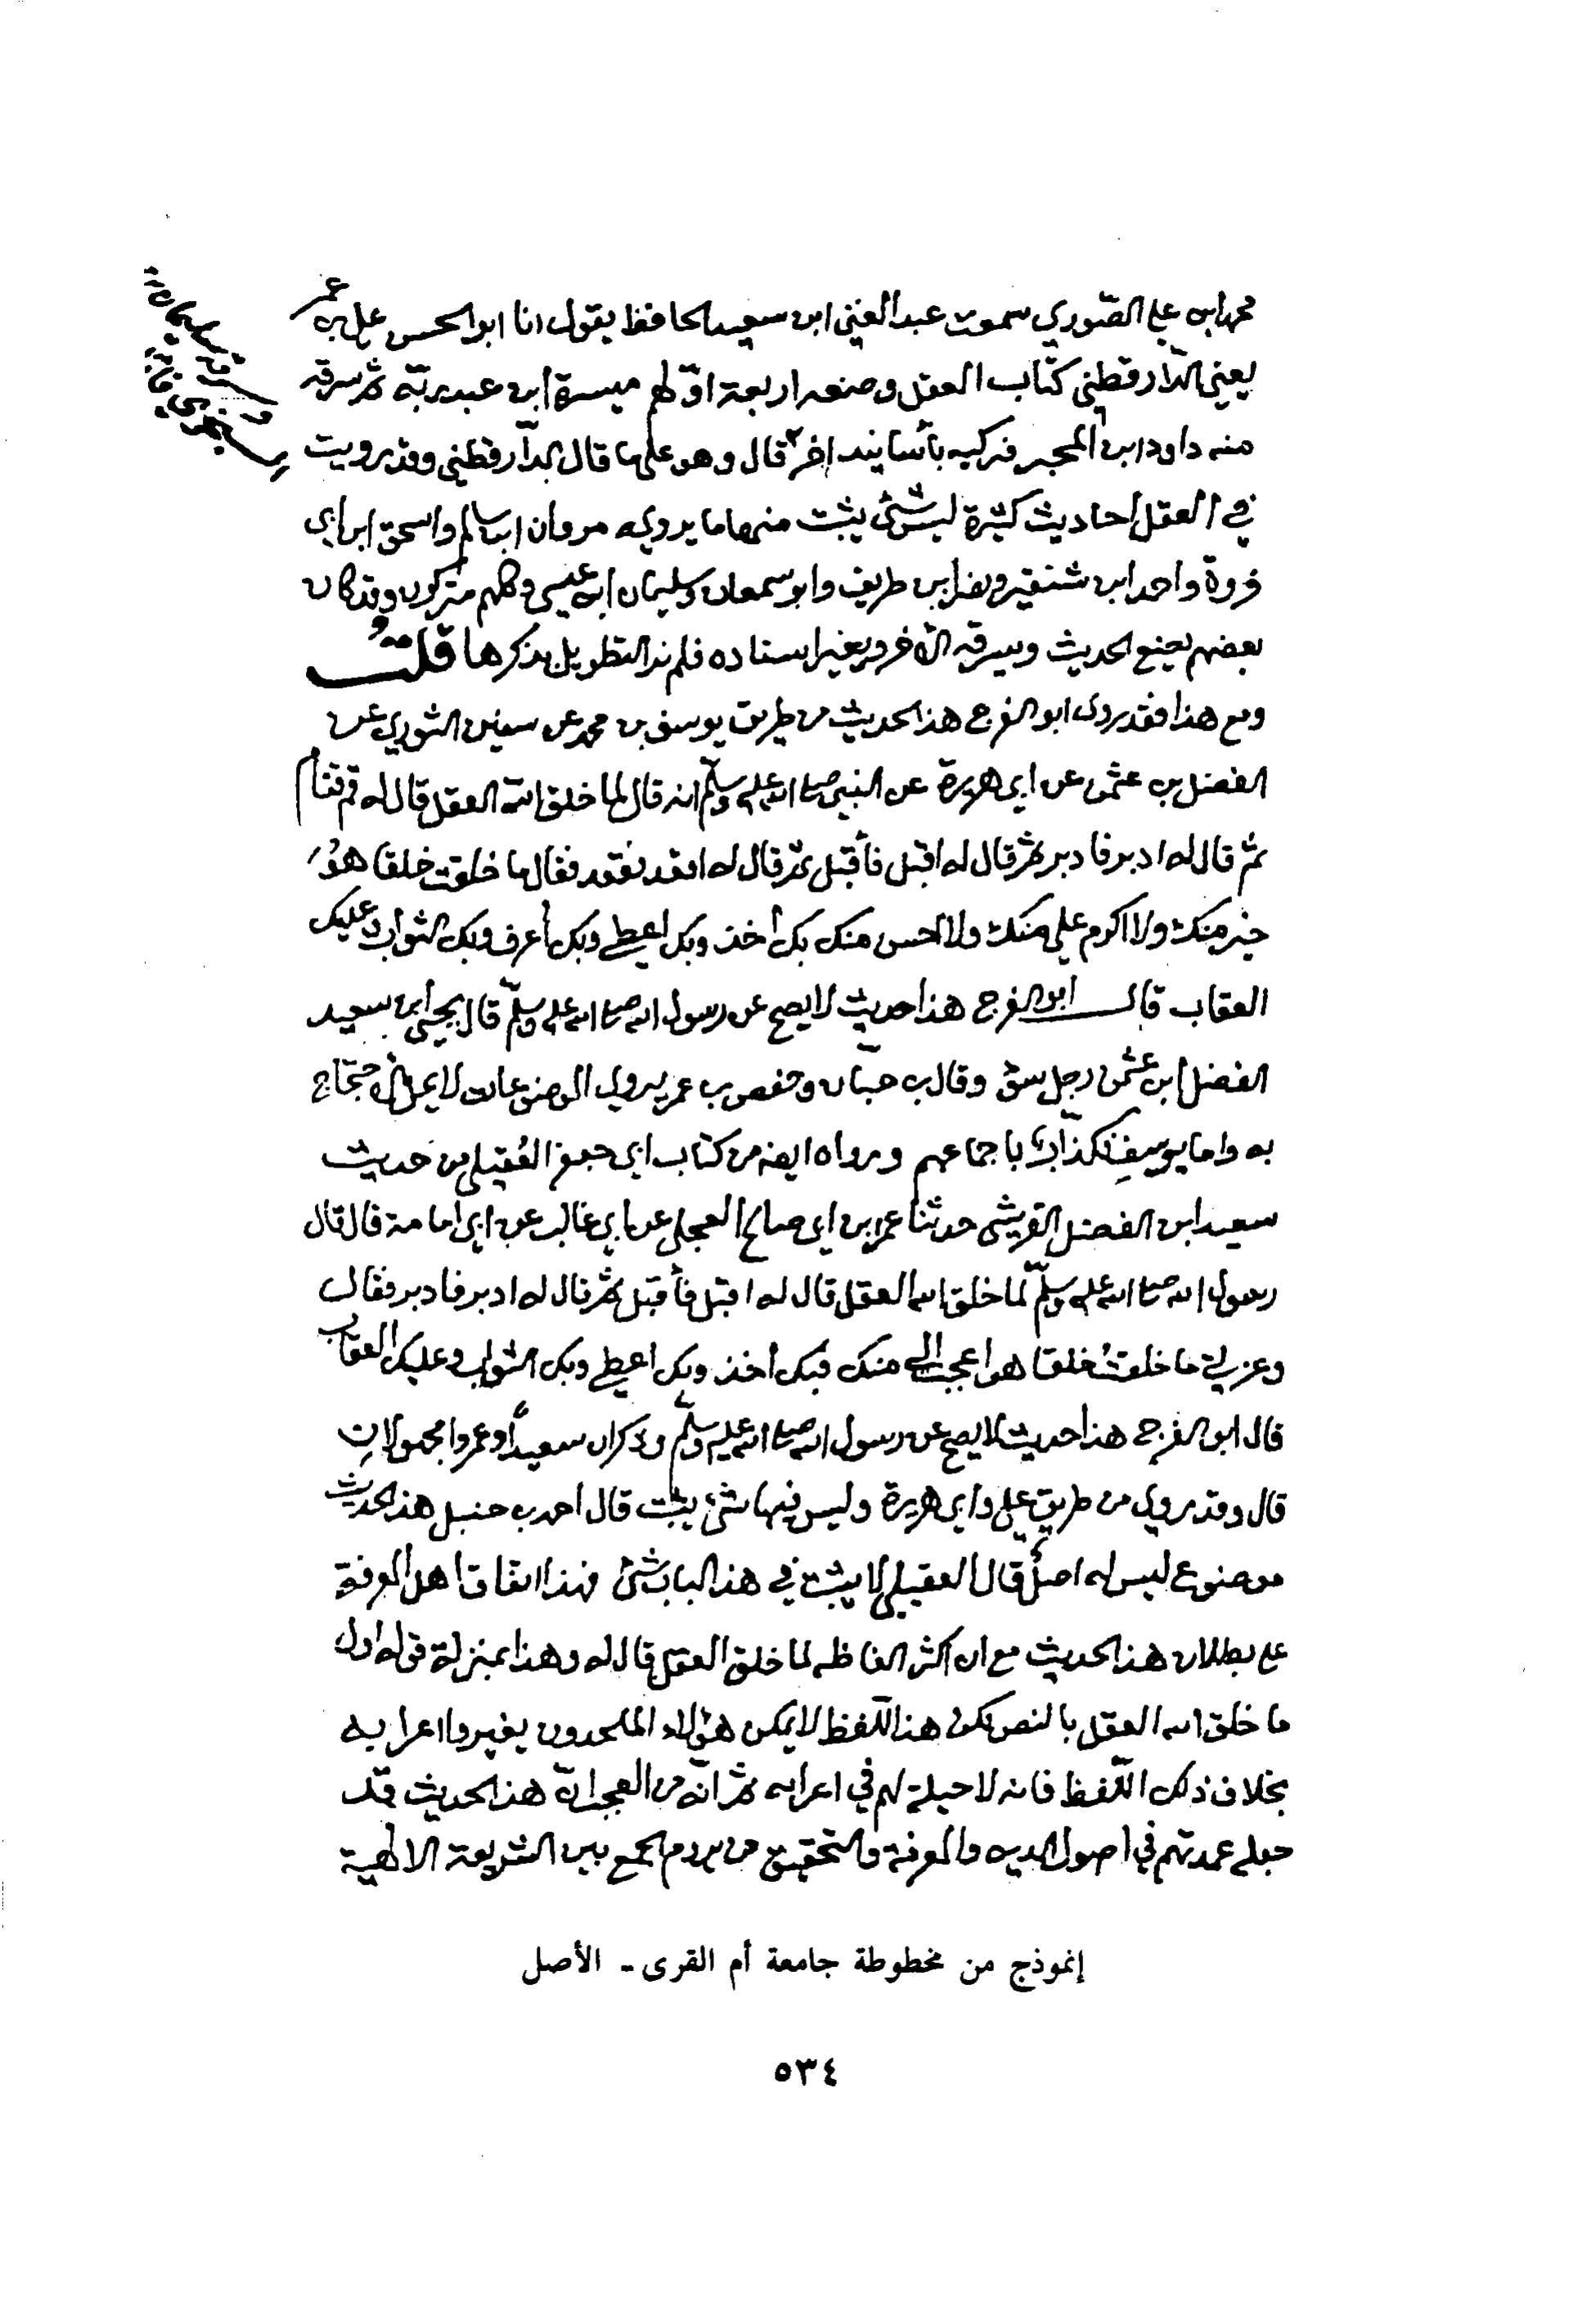 محمد ابن علي الصّوري سمعت عبد الغني ابن سعيد الحافظ يقول انا ابو الحسن علي بن عمر
يعني الدّارقطني كتاب العقل وضعه اربعة اوّلهم ميسرة ابن عبد ربّه ثم سرقه
منه داود ابن المحبر فركبه بأسانيد اخر قال وهو على ما قال الدّارقطني وقد رويت
في العقل احاديث كثيرة ليس شئ يثبت منها ما يرويه مروان ابن سالم واسحق ابن ابي
فروة واحمد ابن ونصر ابن طريف وابو سمعان وسليمان ابن عيسى وكلهم متركون وقد كان
بعضهم يضع الحديث ويسرقه الآخر ويغير اسناده فلم نر التطويل بذكرها قلتُ
ومع هذا فقد روى ابو الفرج هذا الحديث من طريق يوسف بن محمد عن سفين الثوري عن
الفضل بن عثمن عن ابي هريرة عن النبي صلى الله عليه وسلم انه قال لما خلق الله العقل قال له قم فقام
ثم قال له ادبر فادبر ثم قال له اقبل فأقبل ثم قال له اقعد فقعد فقال ما خلقت خلقا هو
خير منك ولا اكرم علي منك ولا احسن منك بك أخذ وبك اعطي وبك أعرف وبك الثواب وعليك
العقاب قال ابو الفرج هذا حديث لا يصح عن رسول الله صلى الله عليه وسلم قال يحيى ابن سعيد
الفضل ابن عثمن رجل سوء وقال ب حبان وحفص ب عمر يروي الموضوعات لا يحل الاحتجاج
به واما يوسف فكذاب باجماعهم ورواه ايضه من كتاب ابي جعفر العُقيلي من حديث
سعيد ابن الفضل القريشي حدثنا عمر بن ابي صالح العجلي عن ابي غالب عن ابي امامة قال قال
رسول الله صلى الله عليه وسلم لما خلق الله العقل قال له اقبل فأقبل ثم قال له ادبر فادبر فقال
وعزتي ما خلقت خلقا هو اعجب الي منك فبك أخذ وبك اعطي وبك الثواب وعليك العقاب
قال ابو الفرج هذا حديث لا يصح عن رسول الله صلى الله عليه وسلم وذكر ان سعيداً وعمروا مجهولان
قال وقد روي من طريق علي وابي هريرة وليس فيها شئ يثبت قال احمد ب حنبل هذا الحديث
موضوع ليس له اصل قال العقيلي لا يثبت في هذا الباب شئ فهذا اتفاق اهل المعرفة
على بطلان هذا الحديث مع ان اكثر الفاظه لما خلق العقل قال له وهذا بمنزلة قوله اول
ما خلق الله العقل بالنصب لكن هذا اللّفظ لا يمكن هؤلاء الملحدون يغيروا اعرابه
بخلاف ذلك اللّفظ فانه لا حيلة لهم في اعرابه ثم انّه من العجب انّ هذا الحديث قد
جعله عمدتهم في اصول الدين والمعرفة والتحقيق من يروم الجمع بين الشريعة الالهية
إنموذج من مخطوطة جامعة أم القرى - الأصل
٥٣٤